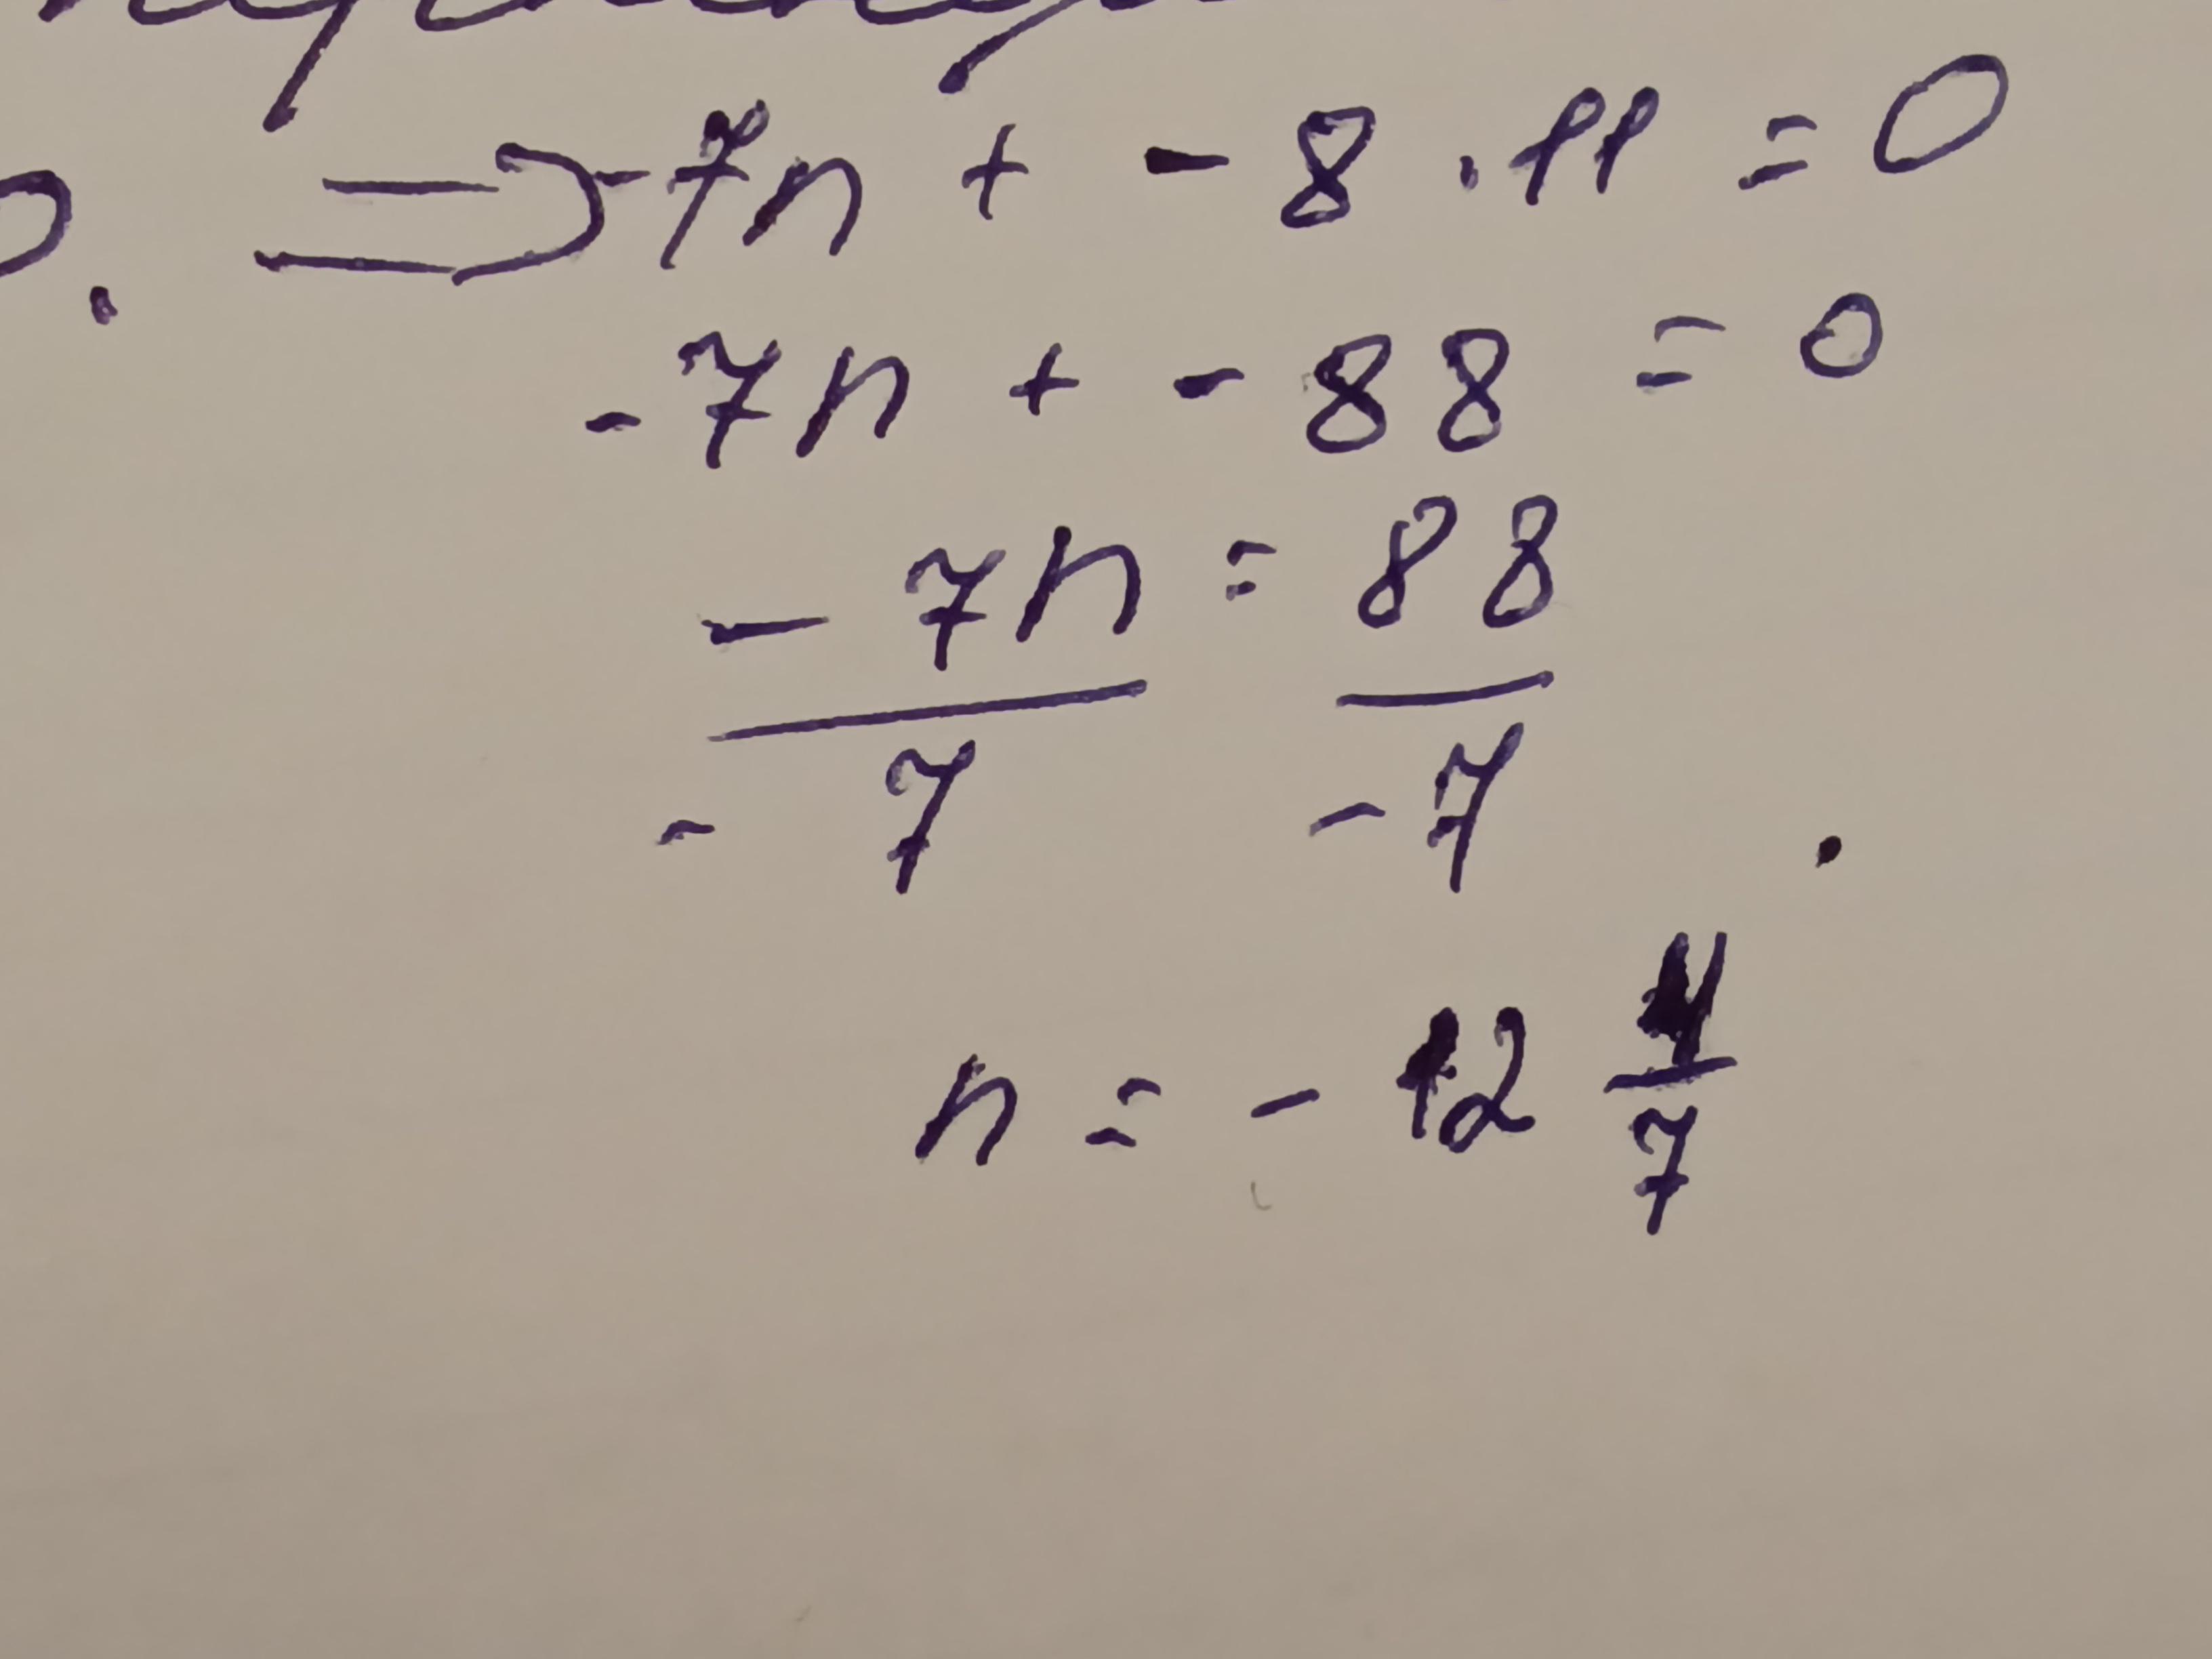 ⇒ -7n + - 8 . 11 = 0
-7n + - 88 = 0
- 7n = 88
- 7 - 7 .
n = - 12 4/7